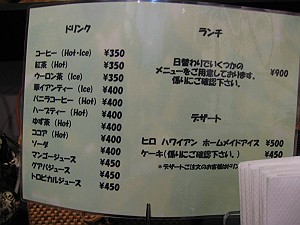 ドリンク
コーヒー (Hot・Ice) ¥350
紅茶 (Hot) ¥350
ウーロン茶 (Ice) ¥350
草イアンティー (Ice) ¥400
バニラコーヒー (Hot) ¥400
ハーブティー (Hot) ¥400
ゆず茶 (Hot) ¥400
ココア (Hot) ¥400
ソーダ ¥400
マンゴージュース ¥450
グアバジュース ¥450
トロピカルジュース ¥450
ランチ
日替わりでいくつかの
メニューをご用意しております。 ¥900
係りにご確認下さい。
デザート
ヒロ ハワイアン ホームメイドアイス ¥500
ケーキ(係りにご確認下さい。) ¥450
*デザートご注文のお客様はドリン